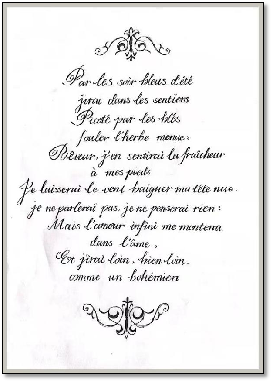 Par les soir bleus d'été
j'irai dans les sentiers
Picoté par les blés
fouler l'herbe menue :
Rêveur, j'en sentirai la fraîcheur
à mes pieds
Je laisserai le vent baigner ma tête nue.
je ne parlerai pas, je ne penserai rien :
Mais l'amour infini me montera
dans l'âme,
Et j'irai loin, bien loin,
comme un bohémien